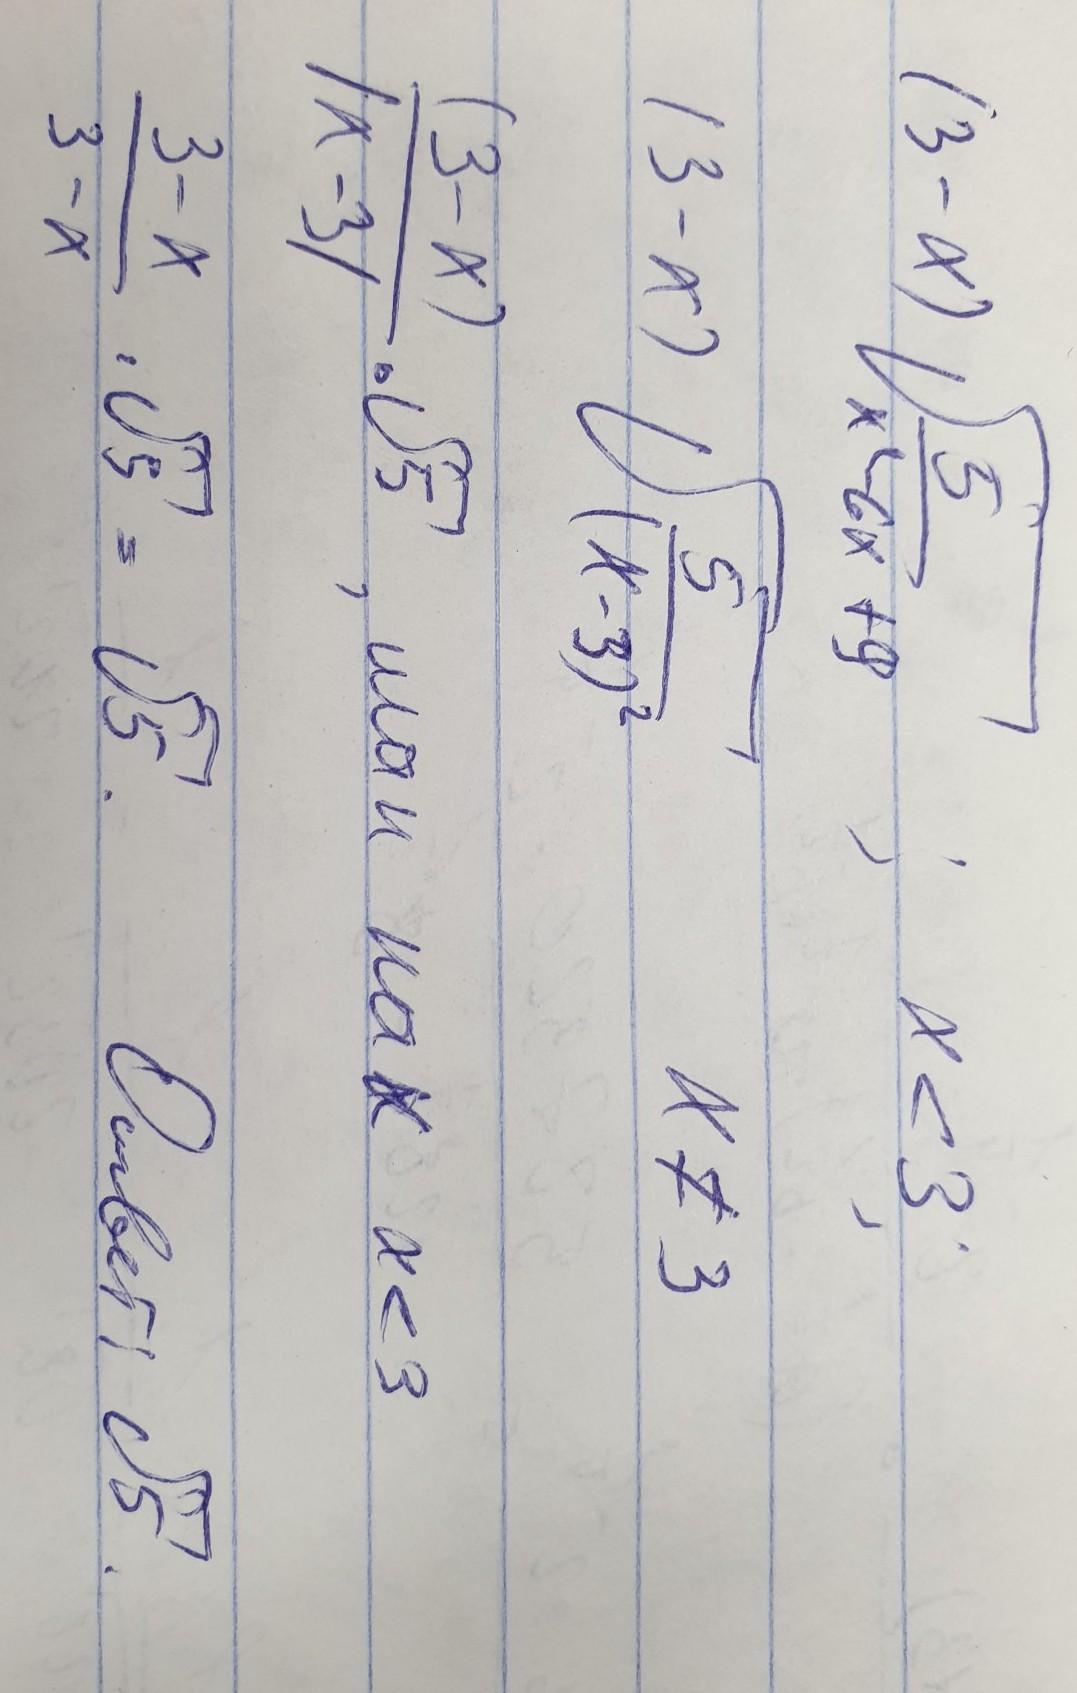 (3-x)√(5/(x²-6x+9)) ; x<3;
(3-x)√(5/(x-3)²) x≠3
(3-x)/|x-3| · √5, так как x<3
(3-x)/(3-x) · √5 = √5. Ответ: √5.